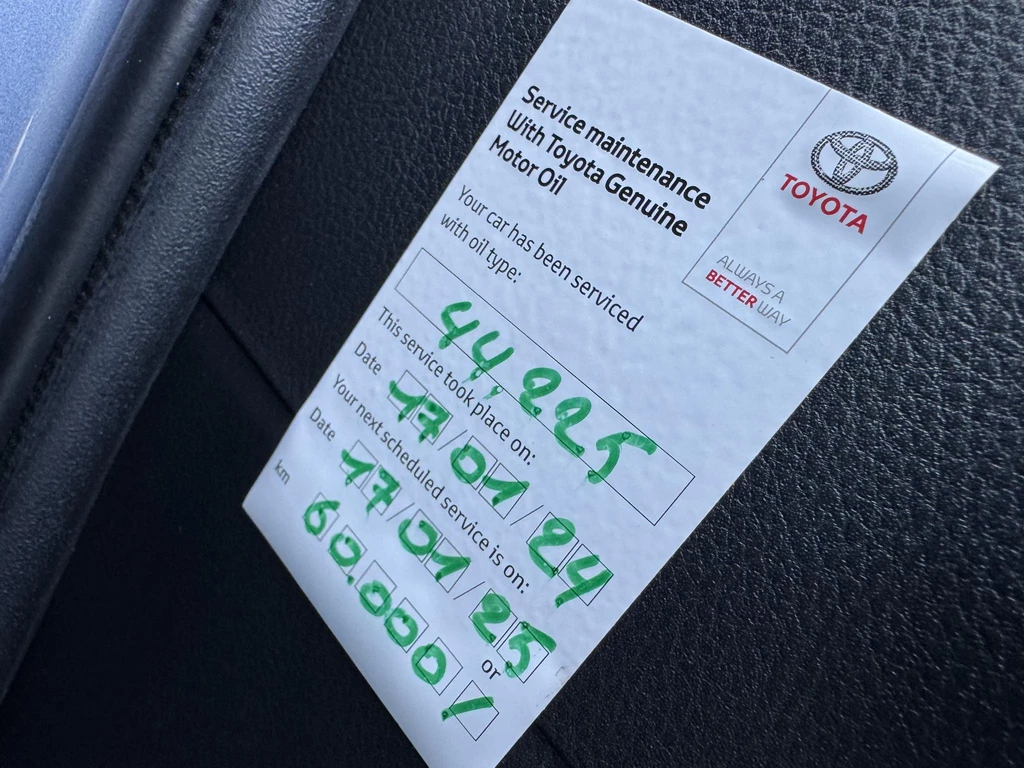 Service maintenance
With Toyota Genuine
Motor Oil
TOYOTA
ALWAYS A
BETTER WAY
Your car has been serviced
with oil type:
44,225
This service took place on:
Date 17/01/24
Your next scheduled service is on:
Date 17/01/25 or
km 60.000/